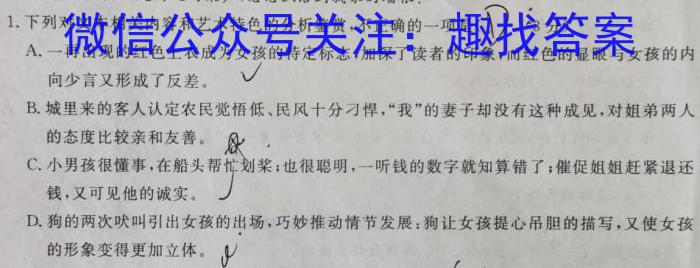 1.下列对
相关内容和艺术特色的分析鉴赏,不正确的一项是
3分
微信公众号关注：趣找答案
A.一再出现的红色上衣成为女孩的特定标志,加深了读者的印象,而红色的显眼与女孩的内
向少言又形成了反差。
B.城里来的客人认定农民觉悟低、民风十分刁悍,“我”的妻子却没有这种成见,对姐弟两人
的态度比较亲和友善。
C.小男孩很懂事,在船头帮忙划桨;也很聪明,一听钱的数字就知算错了;催促姐姐赶紧退还
钱,又可见他的诚实。
D.狗的两次吠叫引出女孩的出场,巧妙推动情节发展;狗让女孩提心吊胆的描写,又使女孩
的形象变得更加立体。